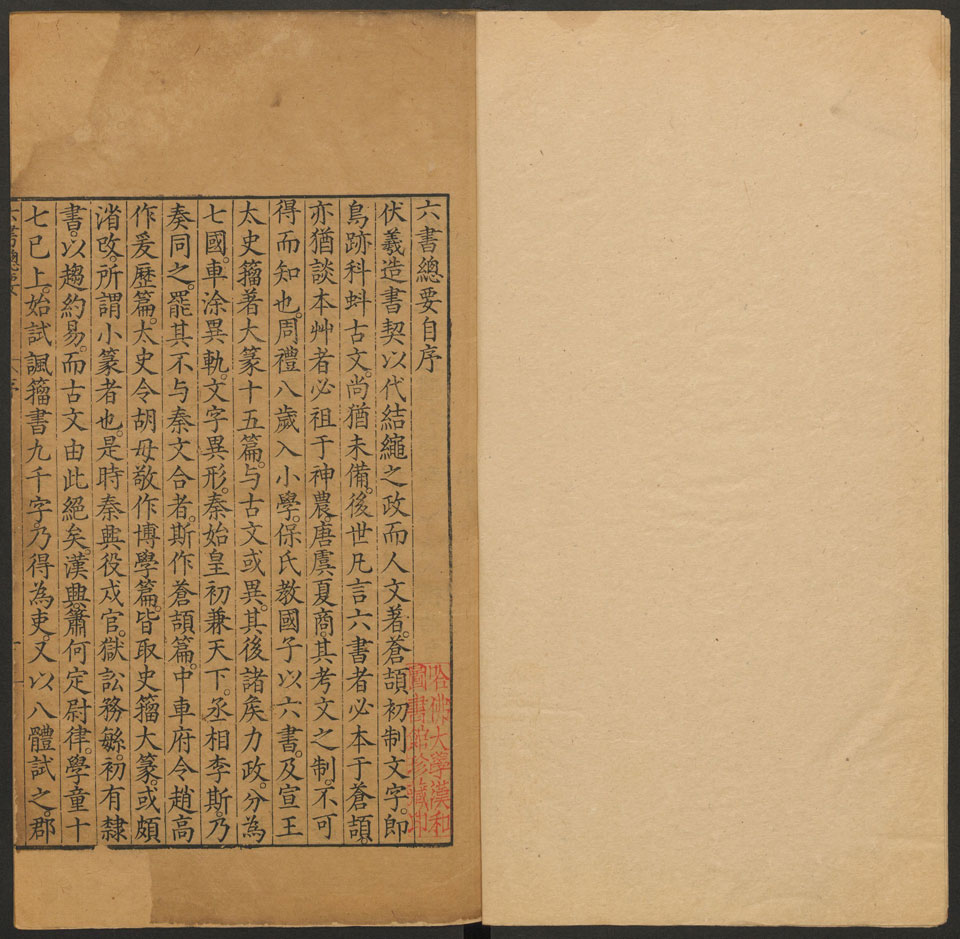 六書總要自序
伏羲造書契以代結繩之政而人文著。蒼頡初制文字。即
鳥跡科蚪古文。尚猶未備。後世凡言六書者必本于蒼頡。
亦猶談本艸者必祖于神農。唐虞夏商。其考文之制。不可
得而知也。周禮八歲入小學。保氏教國子以六書。及宣王
太史籒著大篆十五篇。与古文或異。其後諸矦力政。分為
七國。車涂異軌。文字異形。秦始皇初兼天下。丞相李斯。乃
奏同之。罷其不与秦文合者。斯作蒼頡篇。中車府令趙高
作爰歷篇。太史令胡毋敬作博學篇。皆取史籒大篆。或頗
渻改。所謂小篆者也。是時秦興役戍官。獄訟務緐。初有隸
書。以趨約易。而古文由此絕矣。漢興蕭何定尉律。學童十
七已上。始試諷籒書九千字。乃得為吏。又以八體試之。郡
哈佛大學漢和
圖書館珍藏印